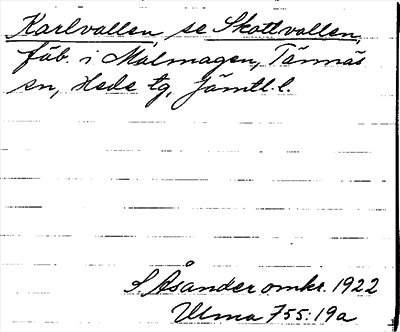 Karlvallen, se Skottvallen,
fäb. i Malmagen, Tännäs
sn, Hede tg, Jämtl. l.
S Åsander omkr. 1922
Ulma 755:19a